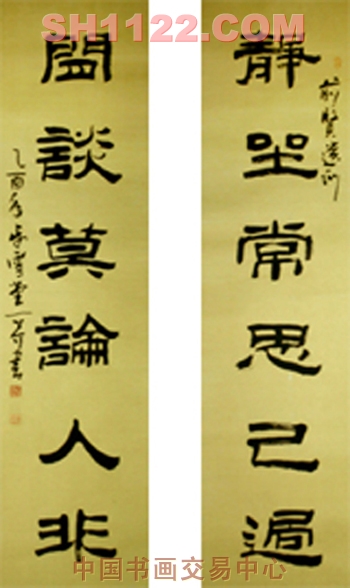 SH1122.COM
靜坐常思己過
前賢遺訓
閒談莫論人非
中国书画交易中心